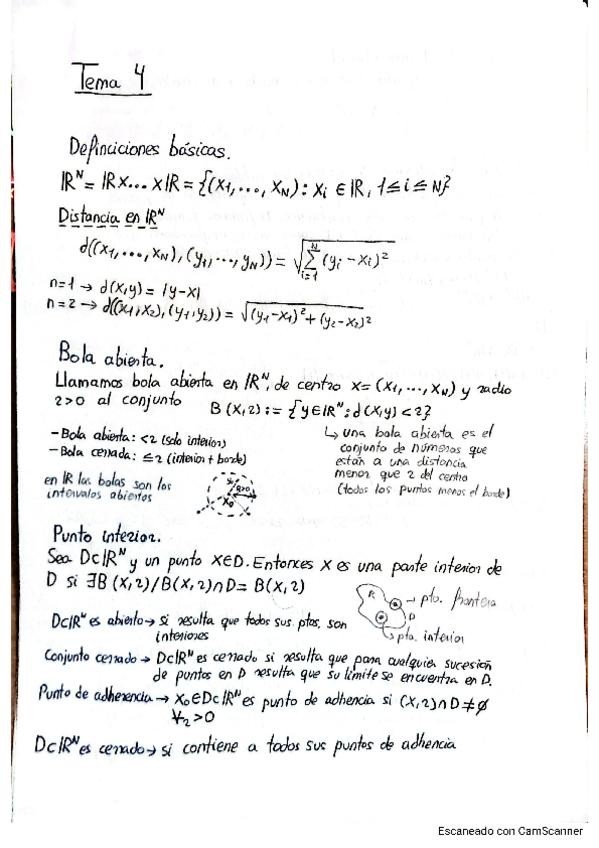 Tema 4
Definciciones básicas.
ℝᴺ = ℝx...xℝ = {(x₁,..., x_N) : xᵢ ∈ ℝ, 1≤i≤N}
Distancia en ℝᴺ
d((x₁,...,x_N), (y₁,...,y_N)) = √(∑_{i=1}^{N} (yᵢ - xᵢ)²)
n=1 → d(x,y) = |y-x|
n=2 → d((x₁,x₂), (y₁,y₂)) = √((y₁-x₁)² + (y₂-x₂)²)
Bola abierta.
Llamamos bola abierta en ℝᴺ, de centro x=(x₁,...,x_N) y radio
2>0 al conjunto B(x,2) := {y∈ℝᴺ: d(x,y) <2}
- Bola abierta: <2 (solo interior)
- Bola cerrada: ≤2 (interior + borde)
↳ una bola abierta es el
conjunto de números que
están a una distancia
menor que 2 del centro
(todos los puntos menos el borde)
en ℝ las bolas son los
intervalos abiertos
x₀
Punto interior.
Sea D⊂ℝᴺ y un punto x∈D. Entonces x es una parte interior de
D si ∃B(x,2)/B(x,2)∩D = B(x,2)
R
→ pto. frontera
D
→ pto. interior
D⊂ℝᴺ es abierto → si resulta que todos sus ptos. son
interiores
Conjunto cerrado → D⊂ℝᴺ es cerrado si resulta que para cualquier sucesión
de puntos en D resulta que su límite se encuentra en D.
Punto de adherencia → x₀∈D⊂ℝᴺ es punto de adhencia si (x,2)∩D≠∅
∀2>0
D⊂ℝᴺ es cerrado → si contiene a todos sus puntos de adhencia
Escaneado con CamScanner